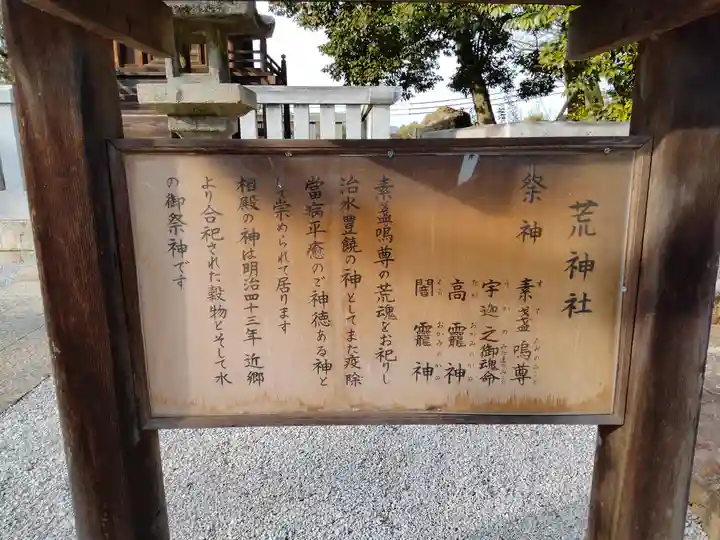 荒神社
祭神
素盞嗚尊
宇迦之御魂命
高龗神
闇龗神
素盞嗚尊の荒魂をお祀りし
治水豊饒の神としてまた疫除
當病平癒のご神徳ある神と
して崇められて居ります
相殿の神は明治四十三年 近郷
より合祀された穀物とそして水
の御祭神です